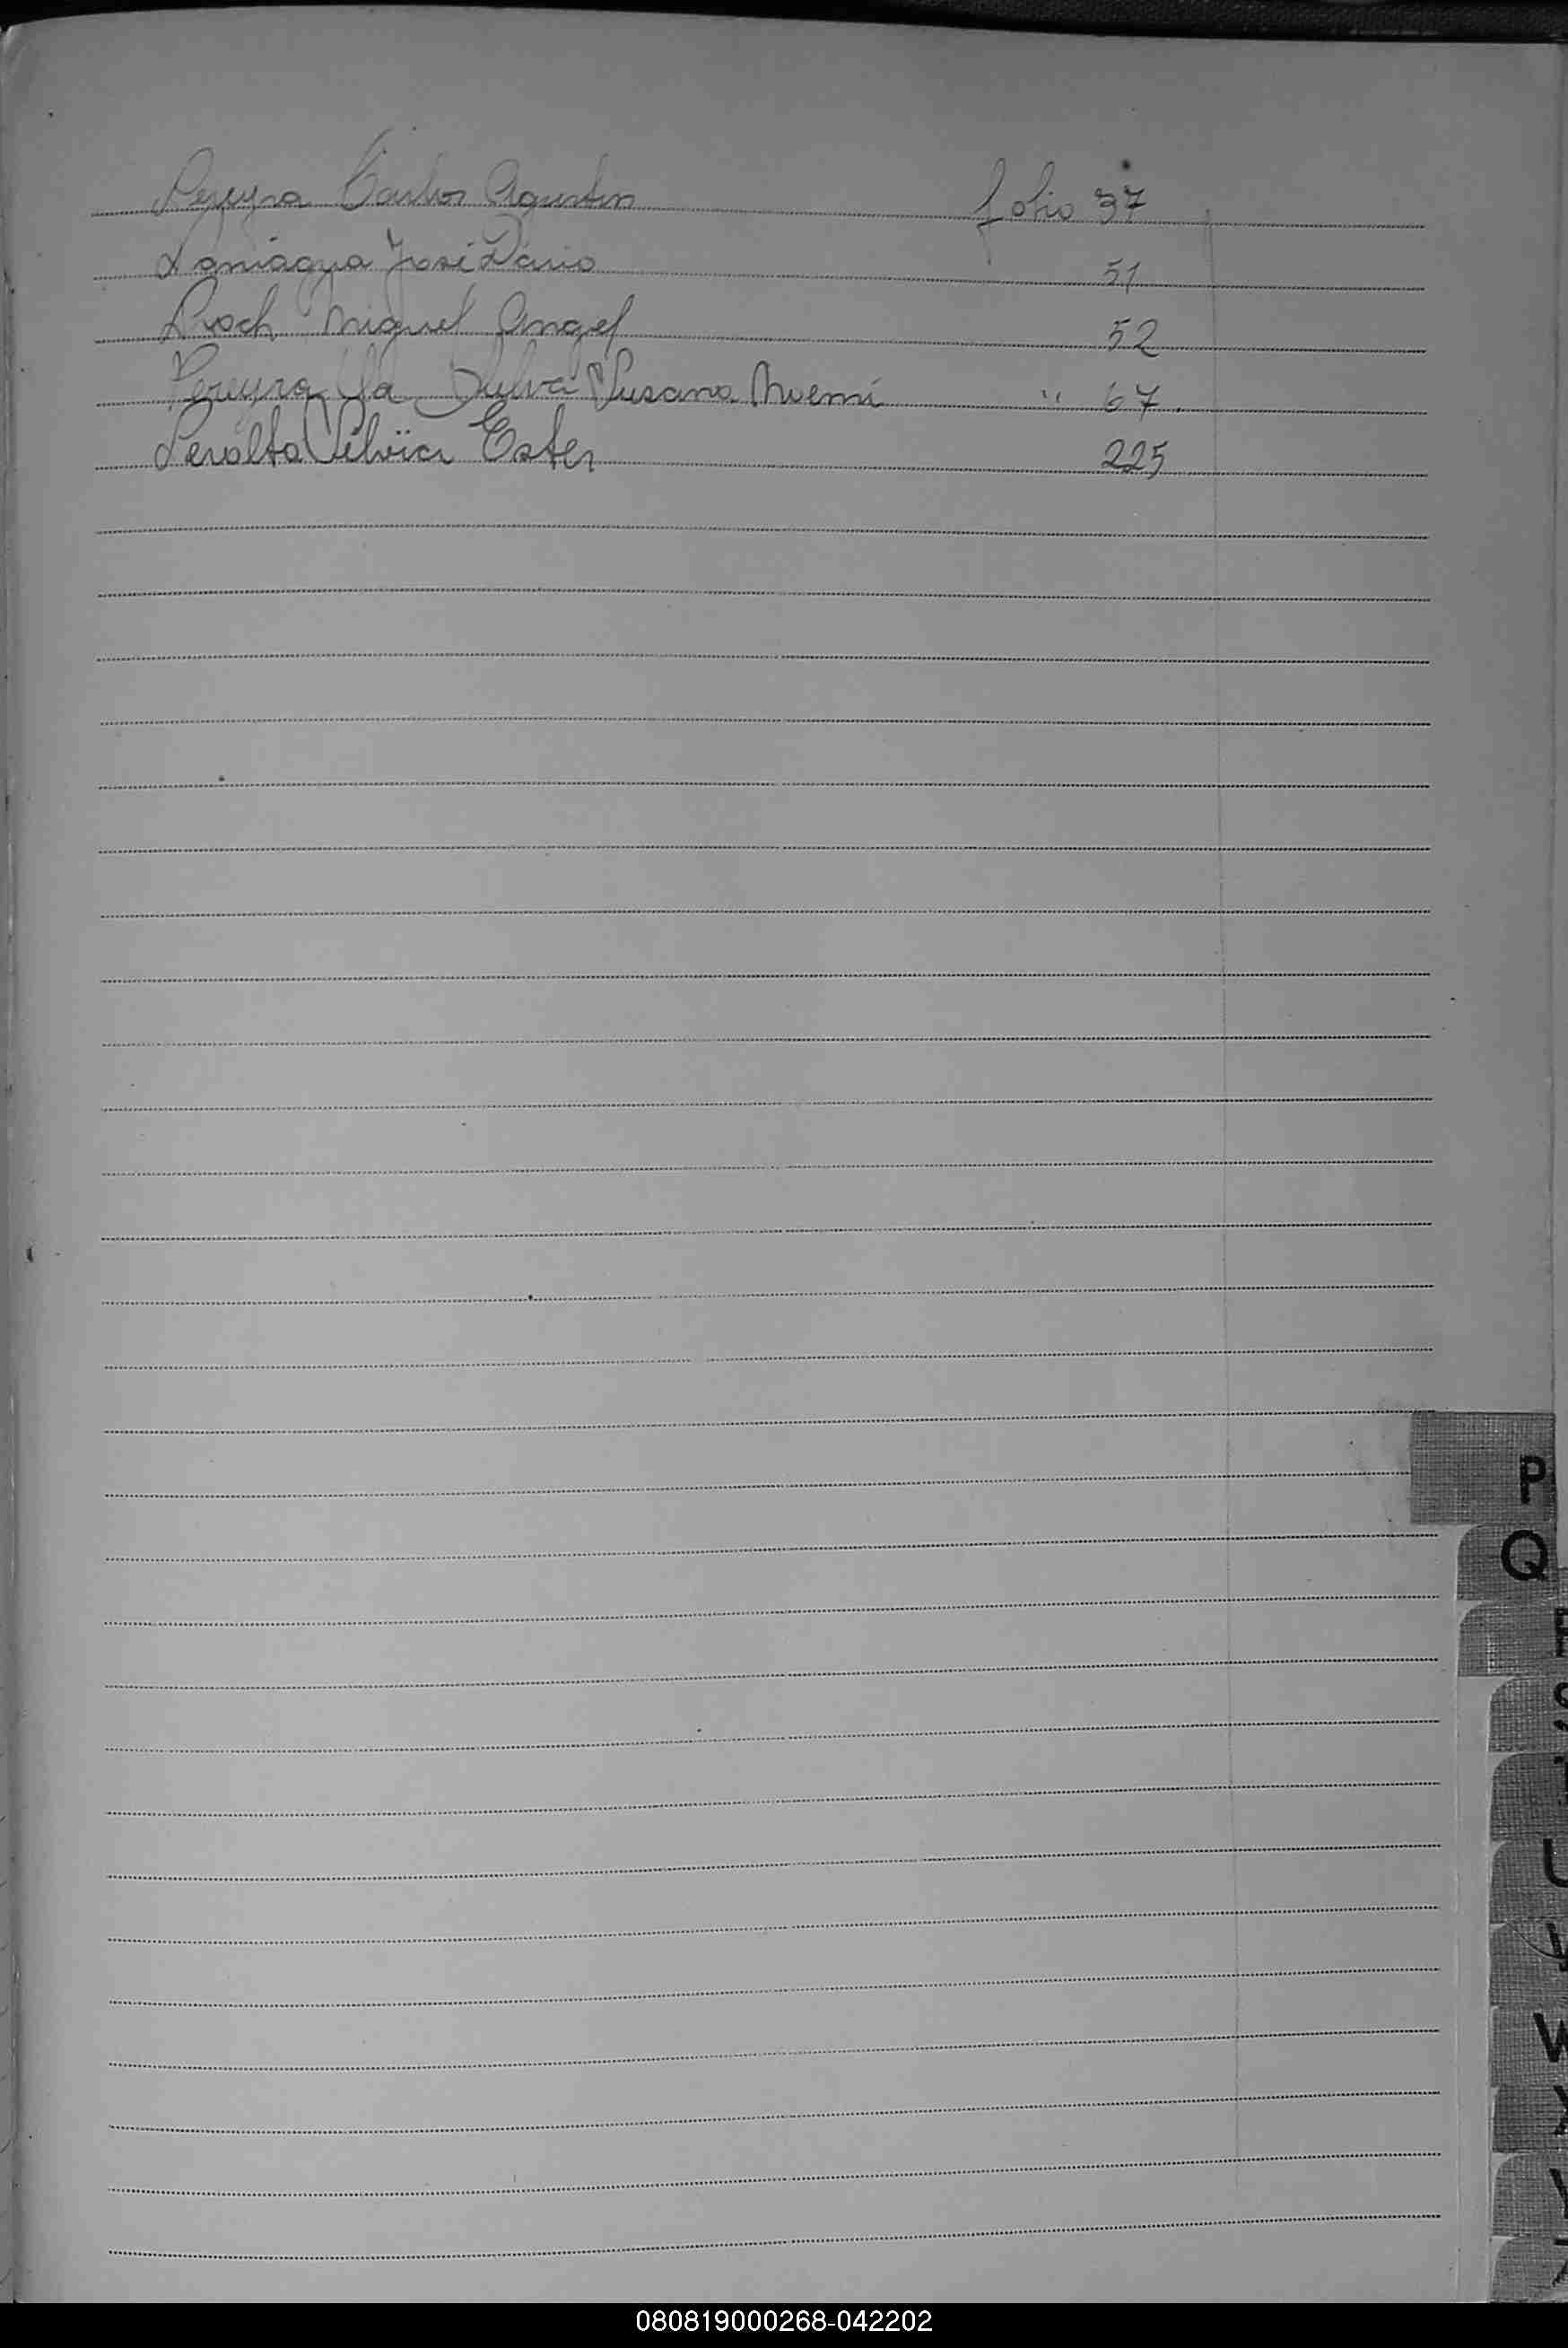 Pereyra Carlos Agustin folio 37
Paniagua José Dario 51
Proch Miguel Angel 52
Pereyra Da Silva Susana Noemí " 67.
Peralta Silvia Ester 225
P
Q
U
W
080819000268-042202